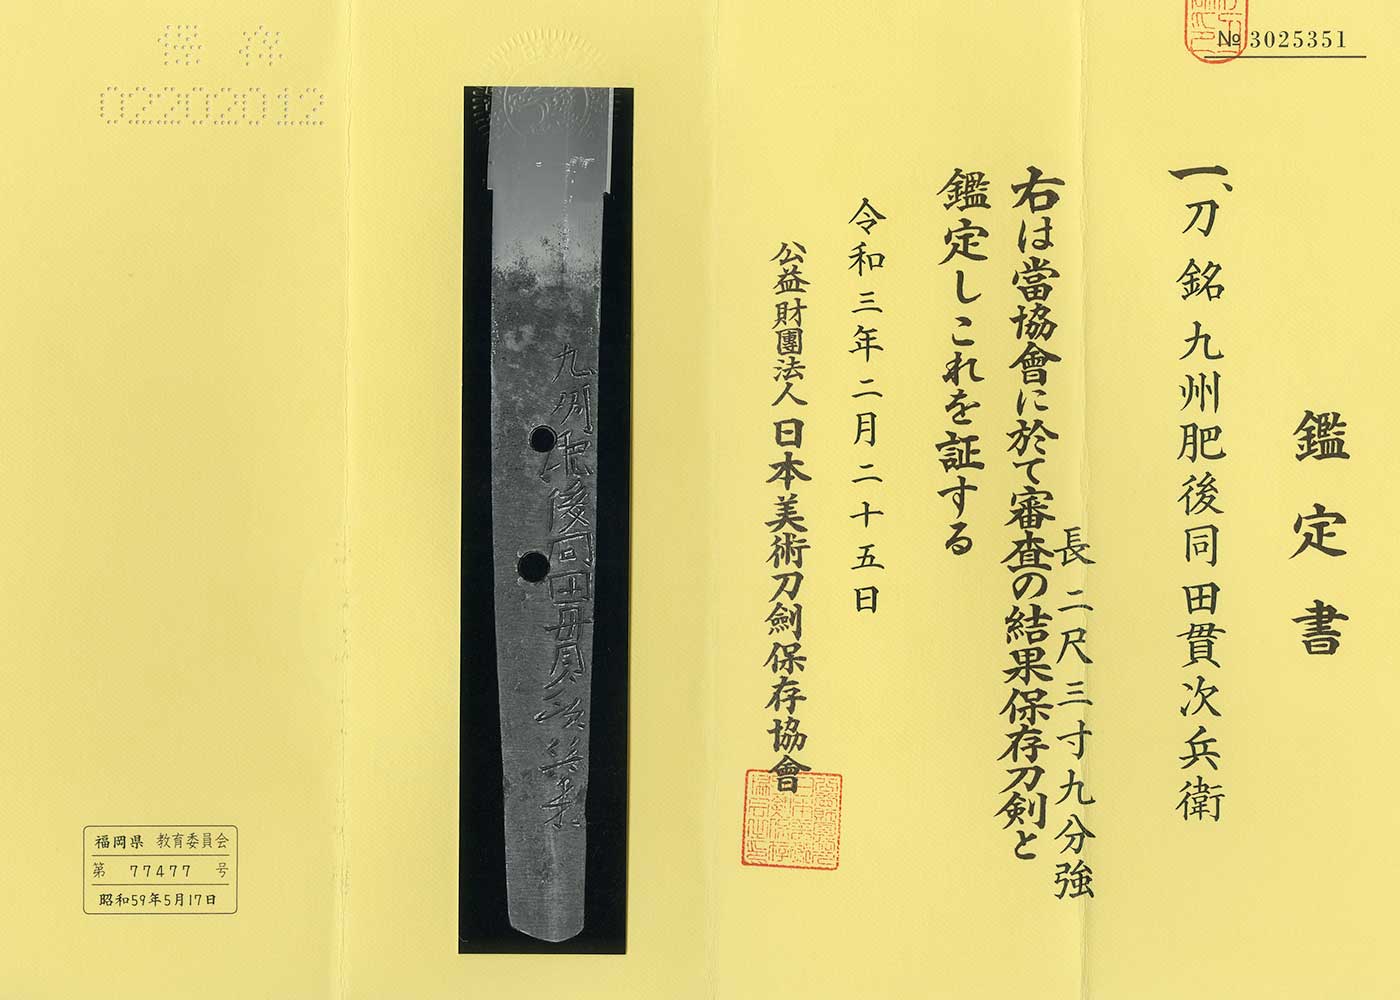 №3025351
鑑定書
一、刀 銘 九州肥後同田貫次兵衛
長 二尺三寸九分強
右は當協會に於て審査の結果保存刀剣と
鑑定しこれを証する
令和三年二月二十五日
公益財團法人 日本美術刀劍保存協會
九州肥後同田貫次兵衛
保存
02202012
福岡県 教育委員会
第 77477 号
昭和59年5月17日